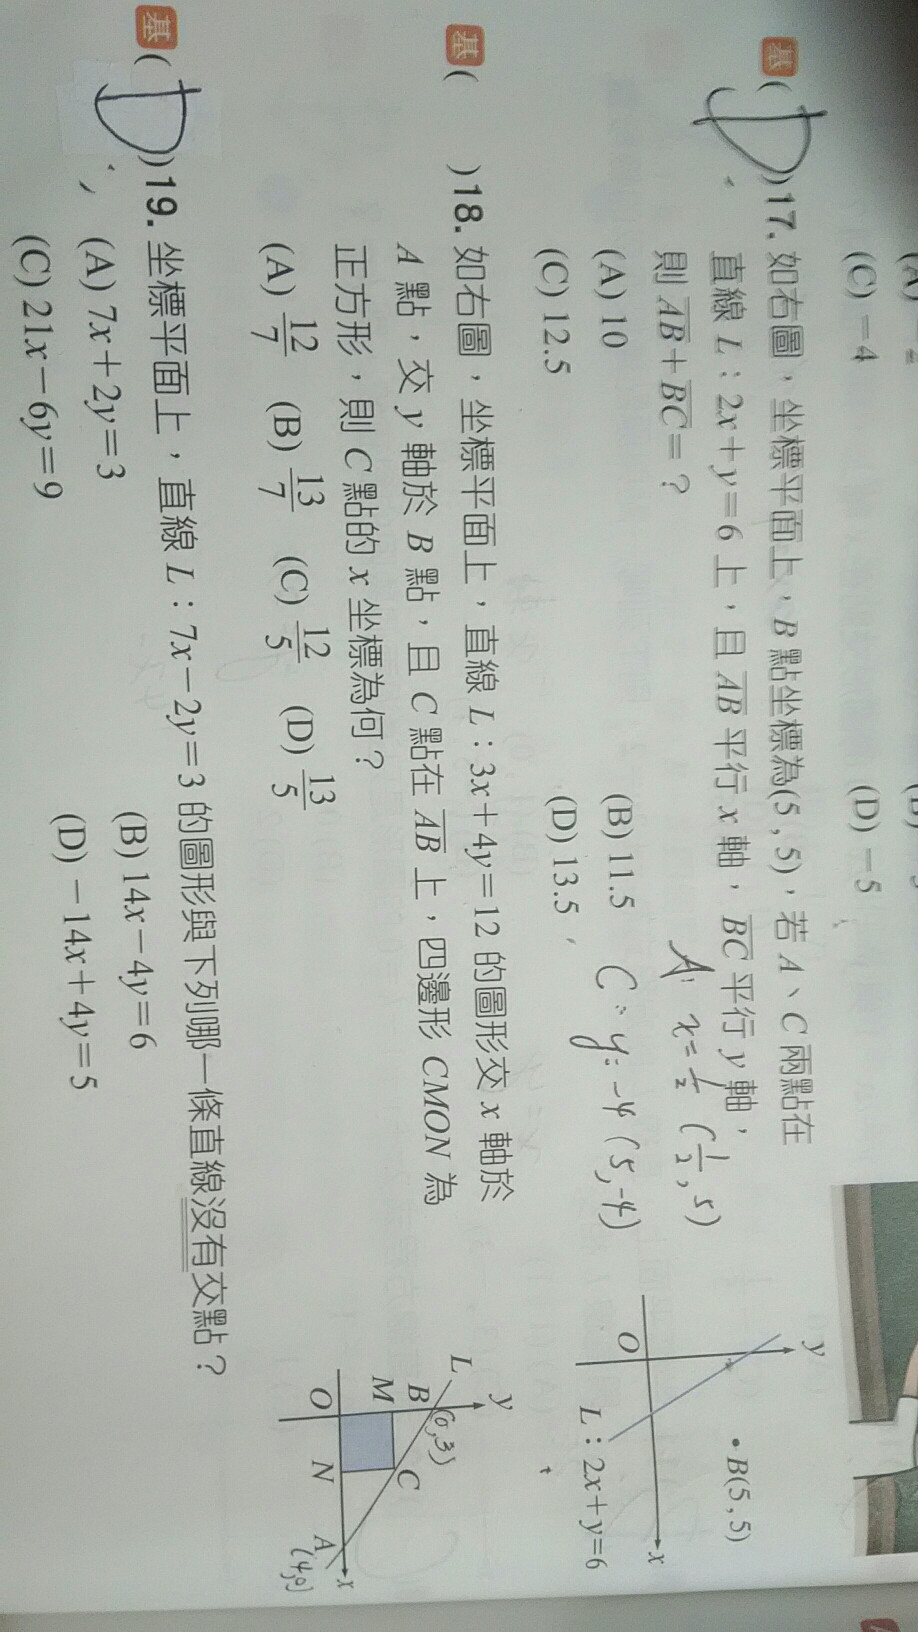 (C) －4
(D) －5
基 ( D )17. 如右圖，坐標平面上，B 點坐標為(5 , 5)，若 A、C 兩點在
直線 L：2x＋y＝6 上，且 AB 平行 x 軸，BC 平行 y 軸，
則 AB＋BC＝？
A: x=1/2 (1/2, 5)
(A) 10
(B) 11.5
C: y: -4 (5,-4)
(C) 12.5
(D) 13.5
y
• B(5 , 5)
O
x
L：2x＋y＝6
基 ( )18. 如右圖，坐標平面上，直線 L：3x＋4y＝12 的圖形交 x 軸於
A 點，交 y 軸於 B 點，且 C 點在 AB 上，四邊形 CMON 為
正方形，則 C 點的 x 坐標為何？
(A) 12/7 (B) 13/7 (C) 12/5 (D) 13/5
y
L
B (0,3)
M
C
O
N
A
x
(4,0)
基 ( D )19. 坐標平面上，直線 L：7x－2y＝3 的圖形與下列哪一條直線沒有交點？
(A) 7x＋2y＝3
(B) 14x－4y＝6
(C) 21x－6y＝9
(D) －14x＋4y＝5